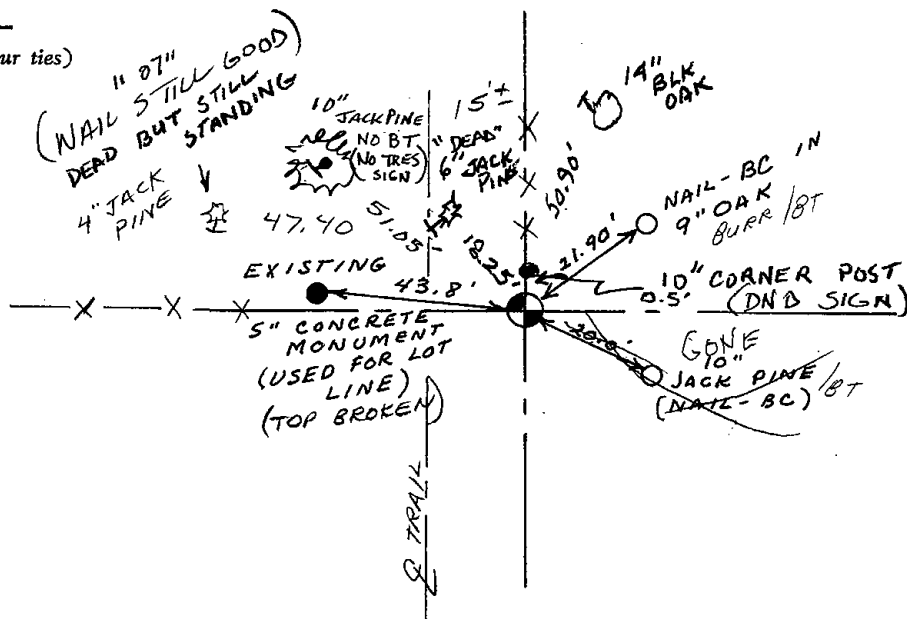 ur ties)
" 07"
(NAIL STILL GOOD)
DEAD BUT STILL
STANDING
4" JACK
PINE
10"
JACK PINE
NO BT
(NO TRES
SIGN)
15'±
"DEAD"
6" JACK
PINE
14"
BLK
OAK
50.90'
NAIL-BC IN
9" OAK
BURR/BT
47.40
51.05'
18.25'
21.90'
EXISTING
43.8'
10" CORNER POST
0.5'
(DNB SIGN)
5" CONCRETE
MONUMENT
(USED FOR LOT
LINE)
(TOP BROKEN)
20.0'
GONE
10"
JACK PINE/BT
(NAIL-BC)
℄ TRAIL